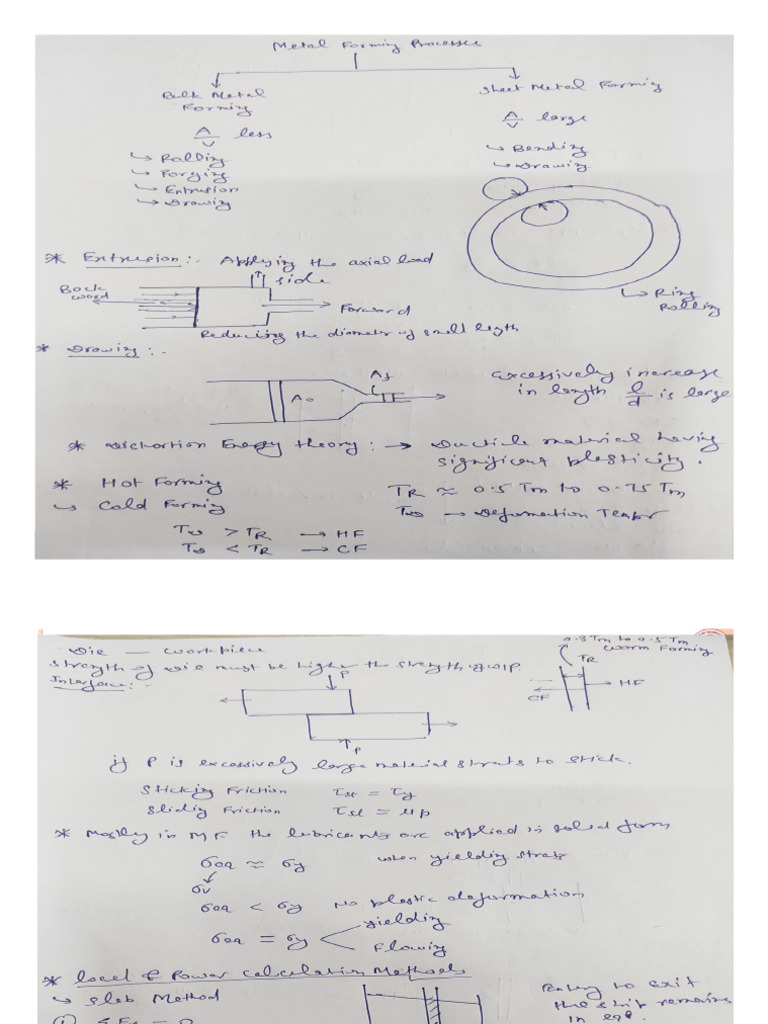 Metal Forming Processes
Bulk Metal
Forming
Sheet Metal Forming
A/V less
A/V large
↳ Rolling
↳ Forging
↳ Extrusion
↳ Drawing
↳ Bending
↳ Drawing
↳ Ring
Rolling
* Extrusion :- Applying the axial load
side
Back
ward
Forward
Reducing the diameter of small length
* Drawing :-
A₀
excessively increase
in length l/d is large
* Dichortion Energy theory : → Ductile material having
significant plasticity.
* Hot Forming
↳ Cold Forming
TR ≈ 0.5 Tm to 0.75 Tm
TD → Deformation
TD > TR → HF
TD < TR → CF
Die — workpiece
Strength of Die must be higher the strength of w/p.
Interface :-
P
P
0.3 Tm to 0.5 Tm
worm Forming
TR
CF
HF
if P is excessively large material strats to stick.
Sticking Friction τst = τy
Sliding Friction τsl = μp
* Mostly in MF the lubricants are applied in solid form
σeq ≈ σy when yielding strats
σv
σeq < σy No plastic deformation
σeq = σy
yielding
Flowing
* Load & Power calculation Methods
↳ Slab Method
Entry to exit
the strip remains
in eqb.